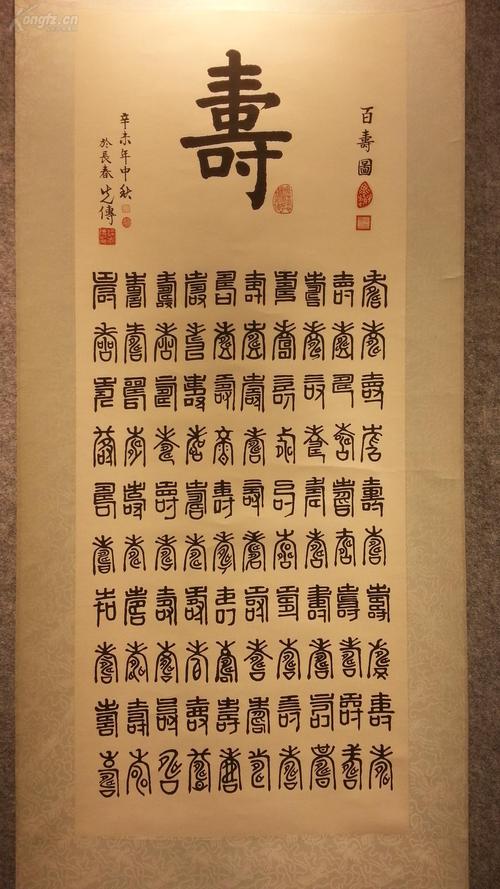 Kongfz.cn
百壽圖
壽
辛未年中秋
於長春
壽壽壽壽壽壽壽壽壽壽
壽壽壽壽壽壽壽壽壽壽
壽壽壽壽壽壽壽壽壽壽
壽壽壽壽壽壽壽壽壽壽
壽壽壽壽壽壽壽壽壽壽
壽壽壽壽壽壽壽壽壽壽
壽壽壽壽壽壽壽壽壽壽
壽壽壽壽壽壽壽壽壽壽
壽壽壽壽壽壽壽壽壽壽
壽壽壽壽壽壽壽壽壽壽